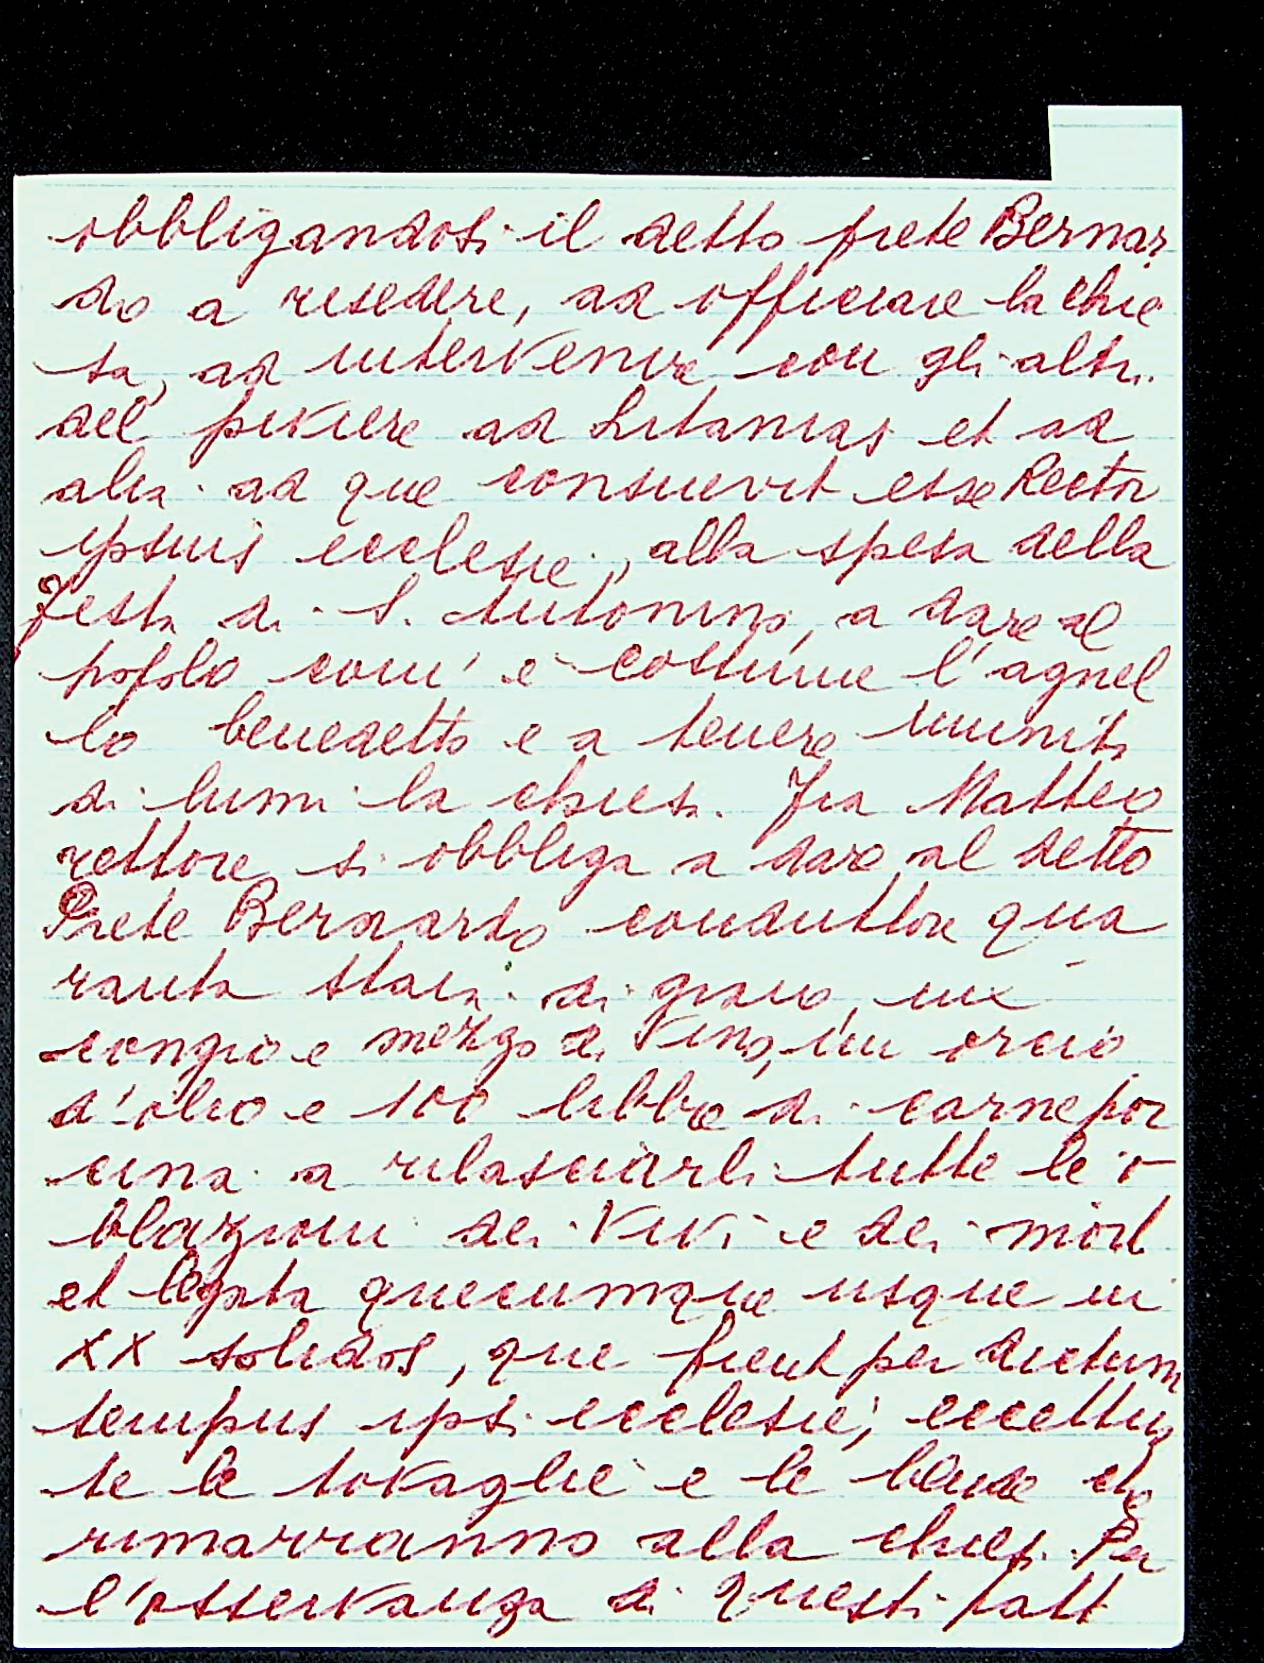 obbligandosi il detto prete Bernar
do a risedere, ad officiare la chie
sa, ad intervenire con gli altri
del piviere ad Litanias et ad
alia ad que consuevit esse Rector
ipsius ecclesie, alla spesa della
festa di S. Antonino, a dare al
popolo com' è costume l'agnel
lo benedetto e a tenere munita
di lumi la chiesa. Fra Matteo
rettore si obbliga a dare al detto
Prete Bernardo conduttore qua
ranta staia di grano, un
congio e mezzo di vino, un orcio
d'olio e 100 libbre di carne por
cina a rilasciarli tutte le o
blazioni dei vivi e dei morti
et legata quecumque usque in
XX solidos, que fient per dictum
tempus ipsi ecclesie; eccettua
te le tovaglie e le bende che
rimarranno alla chiesa. Per
l'osservanza di questi patti